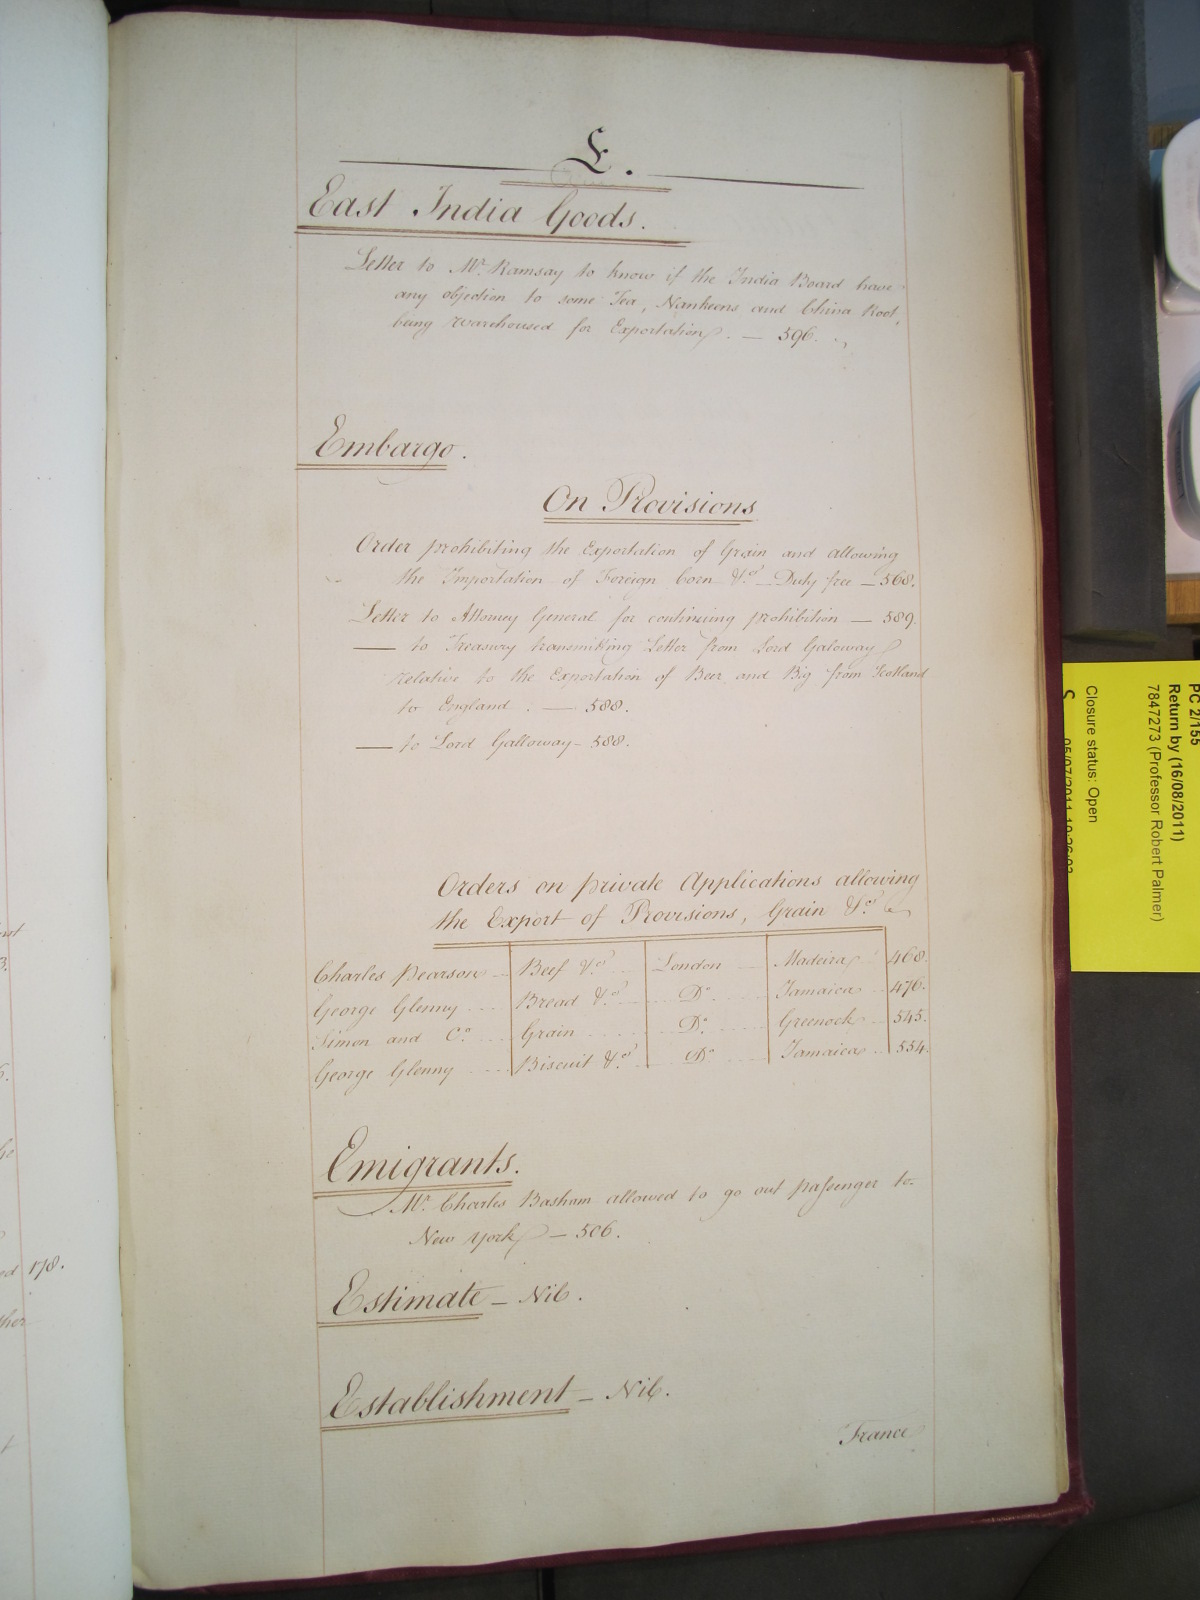 E.
East India Goods.
Letter to Mr. Ramsay to know if the India Board have
any objection to some Tea, Nankeens and China Root,
being warehoused for Exportation. — 596.
Embargo.
On Provisions
Order prohibiting the Exportation of Grain and allowing
the Importation of Foreign Corn &c. Duty free — 568.
Letter to Attorney General for continuing prohibition — 589.
— to Treasury transmitting Letter from Lord Galoway
relative to the Exportation of Beer and Big from Scotland
to England. — 588.
— to Lord Galloway — 588.
Orders on private Applications allowing
the Export of Provisions, Grain &c.
Charles Pearson — Beef &c. London — Madeira 468.
George Glenny Bread &c. Do. Jamaica 476.
Simon and Co. Grain Do. Greenock 545.
George Glenny Biscuit &c. Do. Jamaica 554.
Emigrants.
Mr. Charles Basham allowed to go out passenger to
New York — 506.
Estimate — Nil.
Establishment — Nil.
France
ed 178.
PC 2/155
Return by (16/08/2011)
7847273 (Professor Robert Palmer)
Closure status: Open